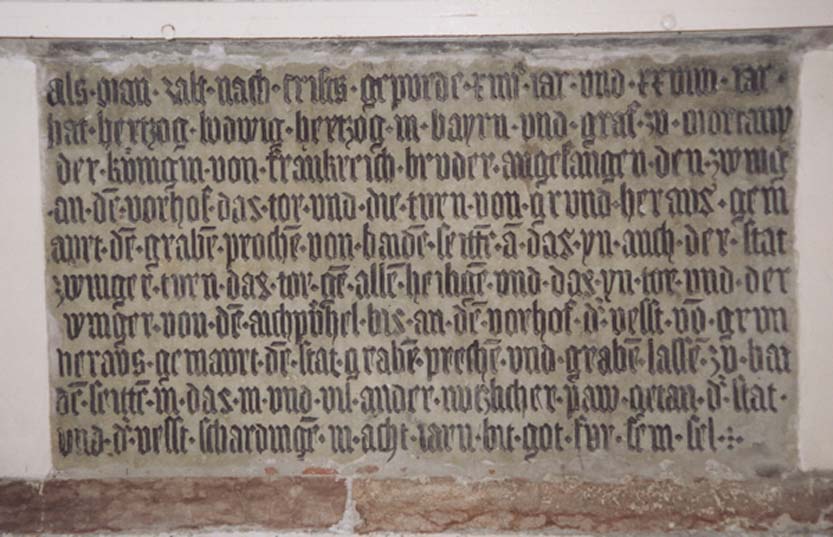 als · man · zalt · nach · crists · gepurde · xiiiic · iar · vnd · xxviiii · iar ·
hat · hertzog · ludwig · hertzog · in · bayrn · vnd · graf · zu · mortany
der · kunigin · von · frankreich · bruder · angefangen · den · zwing
· an · dē · vorhof · das · tor · vnd · die · turn · von · grund · heraus · gem
aurt · dē · grabē · prochē · von · baidē · seittē · ā · das · yn · auch · der · stat
zwinger · turn · das · tor · gē · allē · heiligē · vnd · das · yn · tor · vnd · der
winger · von · dē · bis · an · dē · vorhof · d' · vesst · vō · grun
heraus · gemaurt · dē · stat · grabē · prechē · vnd · grabē · lassē · zu · bai
dē · seittē · in · das · in · vnd · vil · ander · nuczlicher · paw · getan · d' · stat ·
vnd · d' · vesst · schardingē · in · acht · iarn · bit · got · fur · sein · sel ·:·